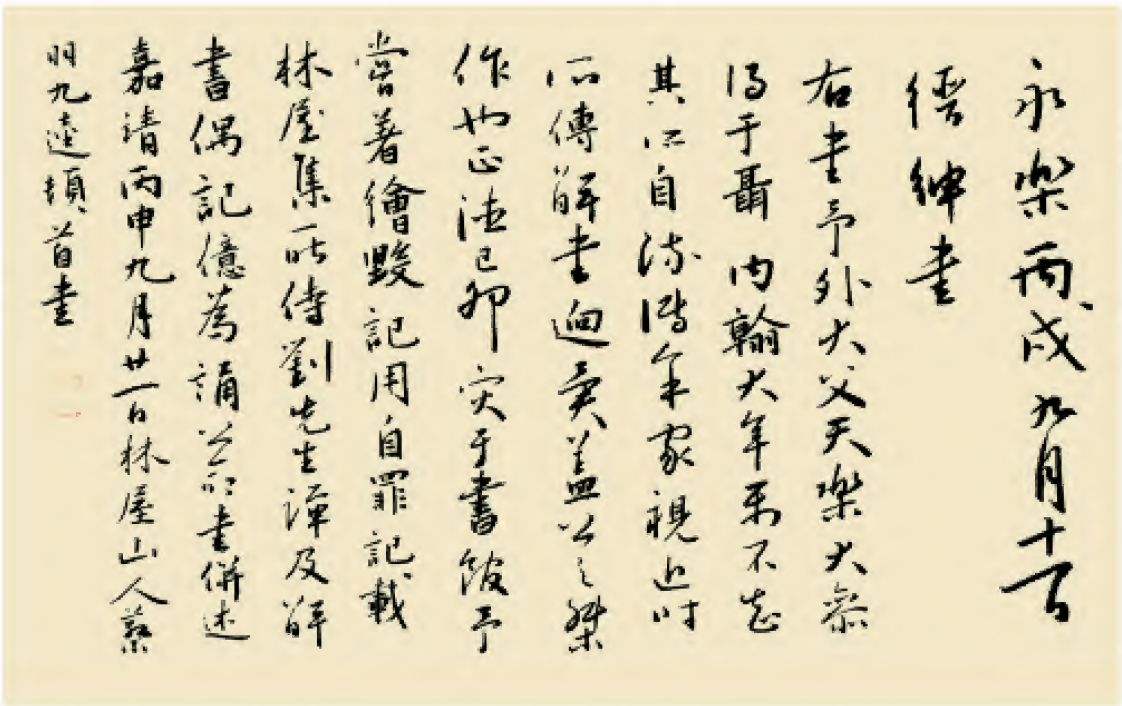 永樂丙戌九月十一日
縉紳書
右書予外大父天樂大參
得于聶內翰大年 不知
其所自 家視近時
所傳解書迥異蓋公之傑
作也正德己卯灾于書館予
嘗著繪毀記用自罪記載
林屋集所侍劉先生譚及解
書偶記憶為誦 書併述
嘉靖丙申九月廿一日林屋山人蔡
羽九逵頓首書